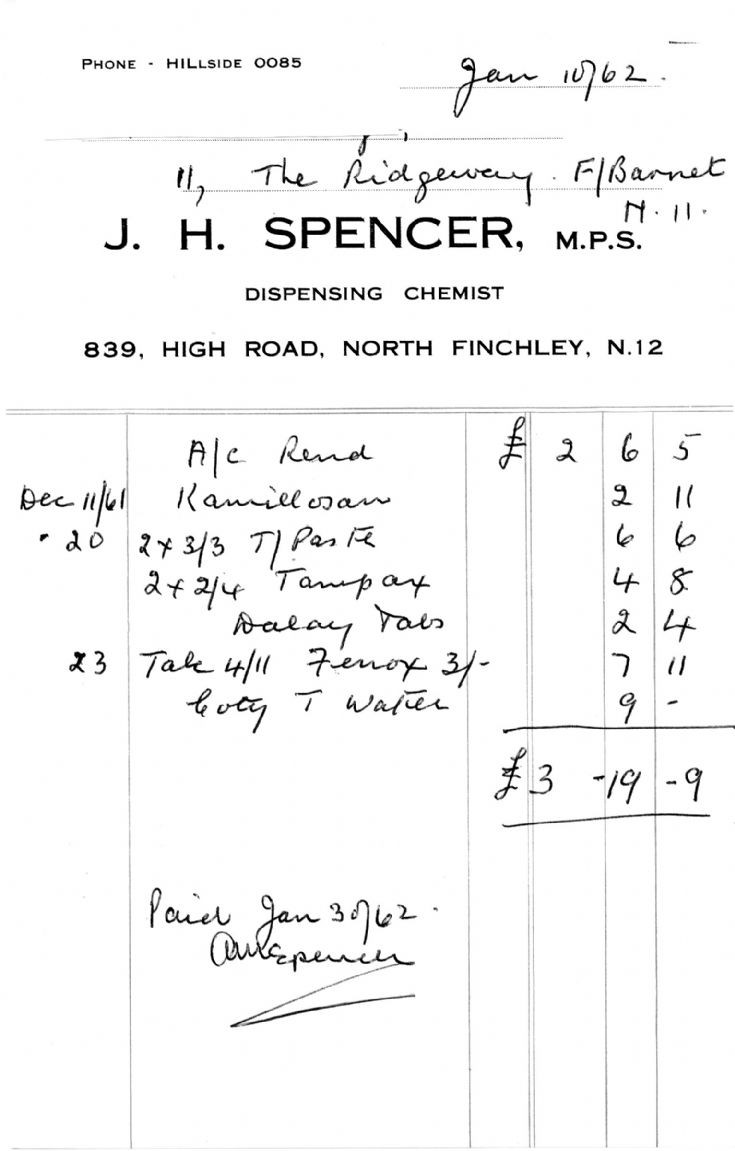 PHONE - HILLSIDE 0085
Jan 10/62.
11, The Ridgeway. F/Barnet
N.11.
J. H. SPENCER, M.P.S.
DISPENSING CHEMIST
839, HIGH ROAD, NORTH FINCHLEY, N.12
A/c Rend £ 2 6 5
Dec 11/61 Kamillosan 2 11
" 20 2 x 3/3 T/Paste 6 6
2 x 2/4 Tampax 4 8
Tabs 2 4
23 Talc 4/11 Fenox 3/- 7 11
Coty T Water 9 -
£3 -19 -9
Paid Jan 30/62.
Spencer